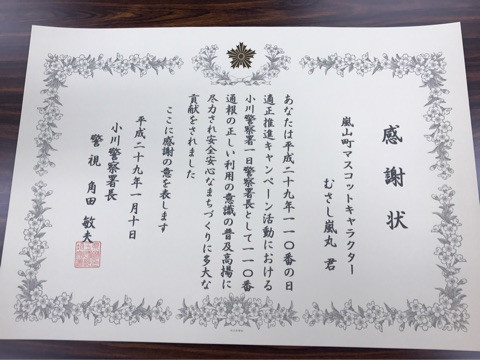 感謝状
嵐山町マスコットキャラクター
むさし嵐丸 君
あなたは平成二十九年一一〇番の日
適正推進キャンペーン活動における
小川警察署一日警察署長として一一〇番
通報の正しい利用の意識の普及高揚に
尽力され安全安心なまちづくりに多大な
貢献をされました
ここに感謝の意を表します
平成二十九年一月十日
小川警察署長
警視 角田敏夫